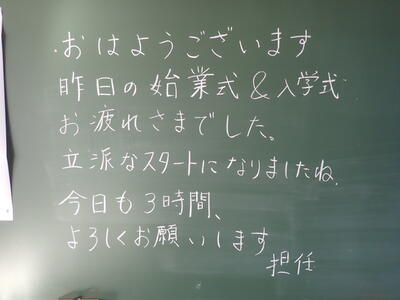 おはようございます
昨日の始業式&入学式
お疲れさまでした。
立派なスタートになりましたね.
今日も3時間、
よろしくお願いします
担任